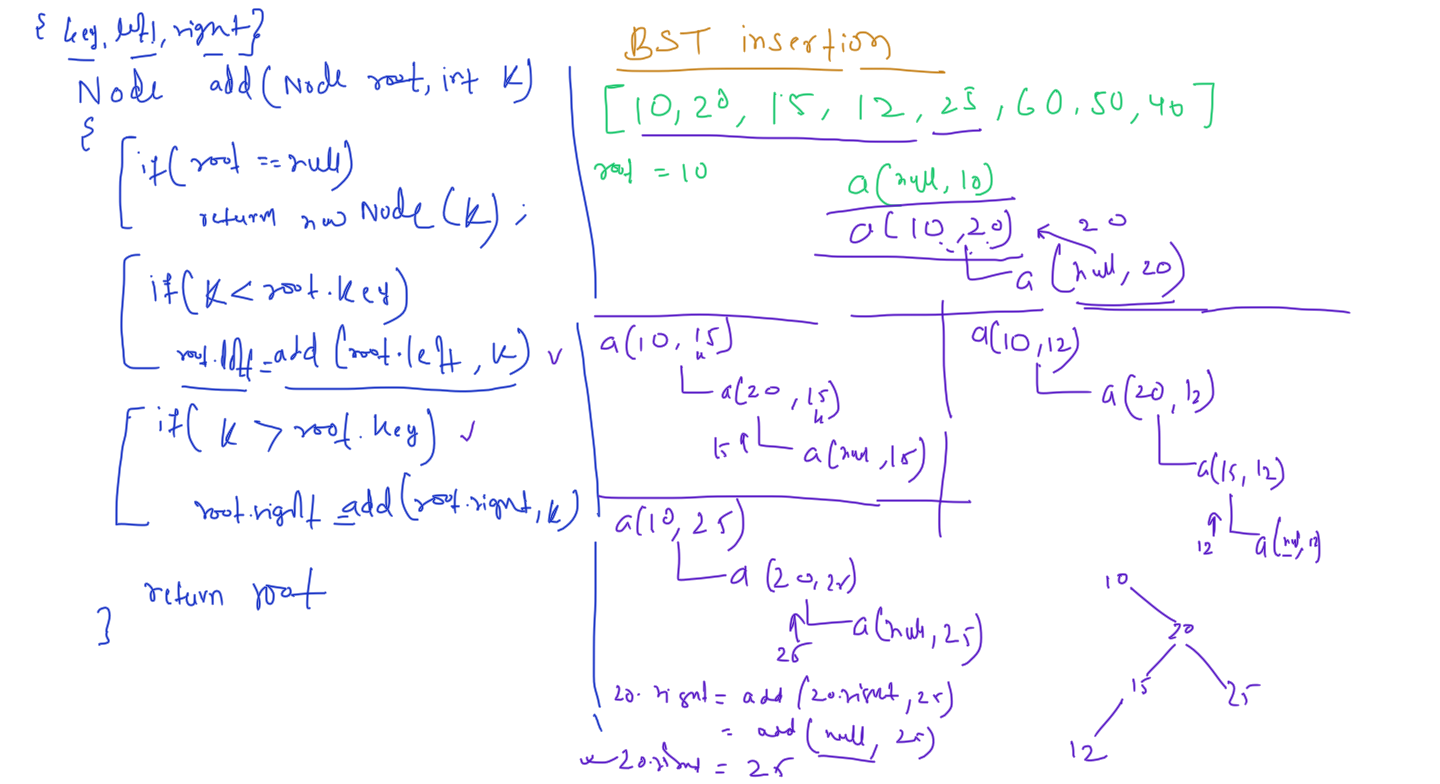 { key, left, right}
Node add(Node root, int K)
{
if(root == null)
return new Node(K);
if(K < root.key)
root.left = add(root.left, K) ✓
if(K > root.key) ✓
root.right = add(root.right, K)
return root
}
BST insertion
[10, 20, 15, 12, 25, 60, 50, 40]
root = 10
a(null, 10)
a(10, 20) 20
a(null, 20)
a(10, 15)
k
a(20, 15)
k
15 a(null, 15)
a(10, 12)
a(20, 12)
a(15, 12)
12 a(null, 12)
a(10, 25)
a(20, 25)
25 a(null, 25)
20.right = add(20.right, 25)
= add(null, 25)
20.right = 25
10
20
15 25
12